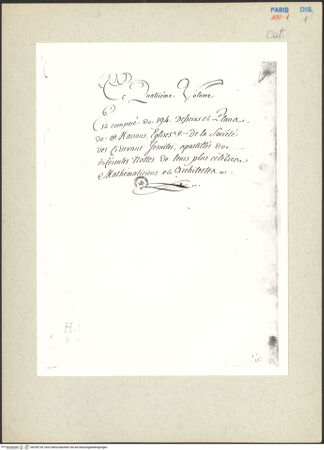 PARIS
DIS.
100-1
1
Cat.
Ce Quatrième Volume
Est composé de 194. Desseins et Plans
de Maisons, Eglises &c de la Société
des Reverens Jesuites, apostillés de
diferentes Nottes de leurs plus célèbres
Mathematiciens et Architectes